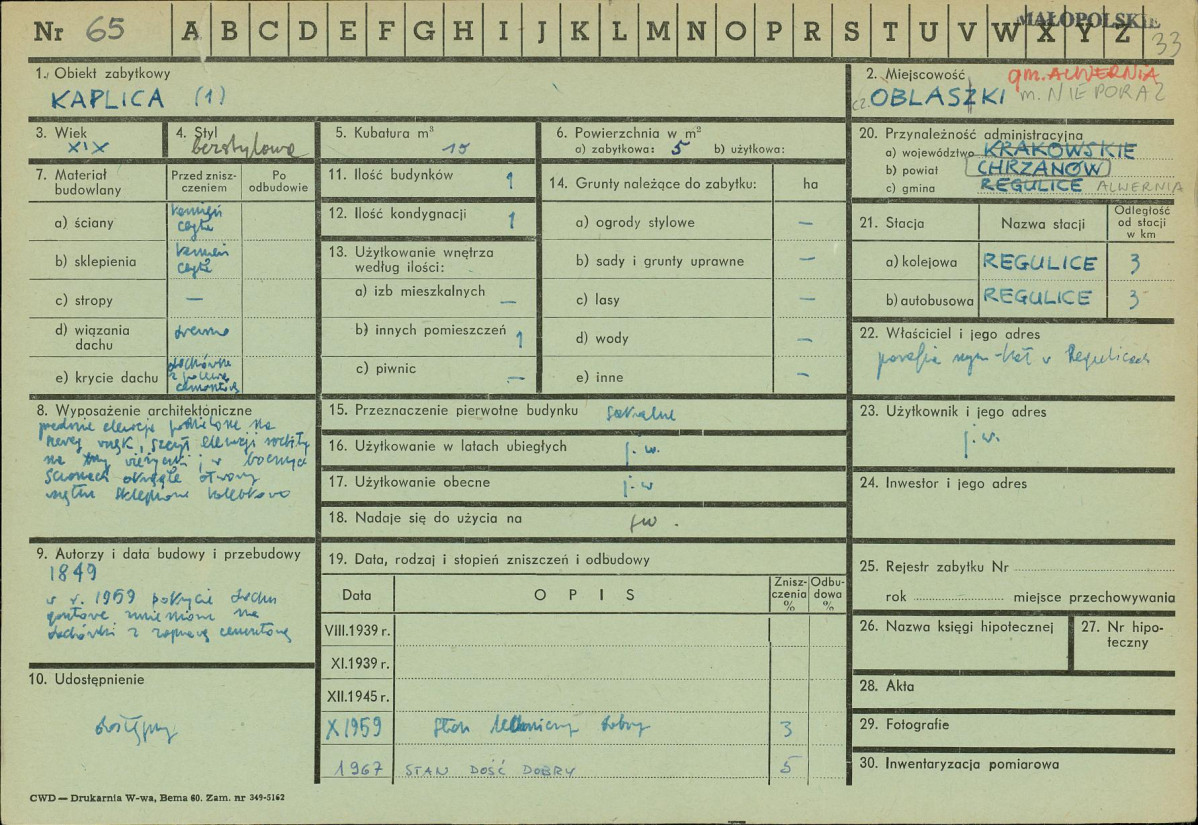 MAŁOPOLSKIE
Nr 65 A B C D E F G H I J K L M N O P R S T U V W X Y Z 33
1. Obiekt zabytkowy
KAPLICA (1)
2. Miejscowość gm. ALWERNIA
cz. OBLASZKI m. NIEPORAZ
3. Wiek
XIX
4. Styl
bezstylowa
5. Kubatura m³
15
6. Powierzchnia w m²
a) zabytkowa: 5 b) użytkowa:
20. Przynależność administracyjna
a) województwo KRAKOWSKIE
b) powiat CHRZANÓW
c) gmina REGULICE ALWERNIA
7. Materiał budowlany
Przed zniszczeniem
Po odbudowie
a) ściany kamień cegła
b) sklepienia kamień cegła
c) stropy —
d) wiązania dachu drewno
e) krycie dachu dachówka z polewą cementową
11. Ilość budynków 1
12. Ilość kondygnacji 1
13. Użytkowanie wnętrza według ilości:
a) izb mieszkalnych —
b) innych pomieszczeń 1
c) piwnic —
14. Grunty należące do zabytku: ha
a) ogrody stylowe —
b) sady i grunty uprawne —
c) lasy —
d) wody —
e) inne —
21. Stacja
Nazwa stacji
Odległość od stacji w km
a) kolejowa REGULICE 3
b) autobusowa REGULICE 3
22. Właściciel i jego adres
parafia rzym-kat w Regulicach
8. Wyposażenie architektóniczne
przednia elewacja podzielone na
szczyt elewacji rozbity
na trzy wieżyczki, w bocznych
ścianach okrągłe otwory
wnętrze sklepione kolebkowo
15. Przeznaczenie pierwotne budynku sakralne
16. Użytkowanie w latach ubiegłych j. w.
17. Użytkowanie obecne j. w
18. Nadaje się do użycia na jw.
23. Użytkownik i jego adres
j. w.
24. Inwestor i jego adres
9. Autorzy i data budowy i przebudowy
1849
w r. 1959 pokrycie dachu
gontowe zmieniono na
dachówki z zaprawą cementową
19. Data, rodzaj i stopień zniszczeń i odbudowy
Data
O P I S
Zniszczenia %
Odbudowa %
VIII.1939 r.
XI.1939 r.
XII.1945 r.
X 1959 Stan techniczny dobry 3
1967 STAN DOŚĆ DOBRY 5
10. Udostępnienie
dostępny
25. Rejestr zabytku Nr
rok miejsce przechowywania
26. Nazwa księgi hipotecznej
27. Nr hipoteczny
28. Akta
29. Fotografie
30. Inwentaryzacja pomiarowa
CWD — Drukarnia W-wa, Bema 60. Zam. nr 349-5162